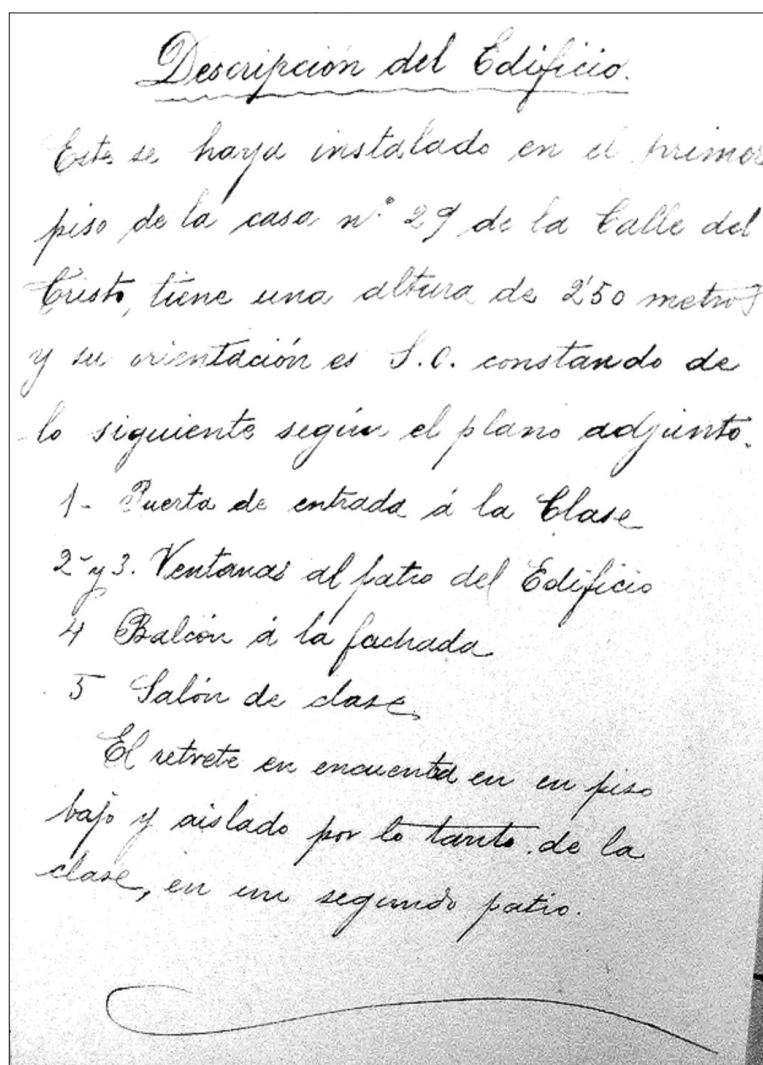 Descripción del Edificio.
Este se haya instalado en el primer
piso de la casa n.º 29 de la Calle del
Cristo, tiene una altura de 2'50 metros
y su orientación es S.O. constando de
lo siguiente según el plano adjunto.
1- Puerta de entrada á la Clase
2 y 3. Ventanas al patio del Edificio
4 Balcón á la fachada
5 Salón de clase
El retrete en encuentra en en piso
bajo y aislado por lo tanto de la
clase, en un segundo patio.